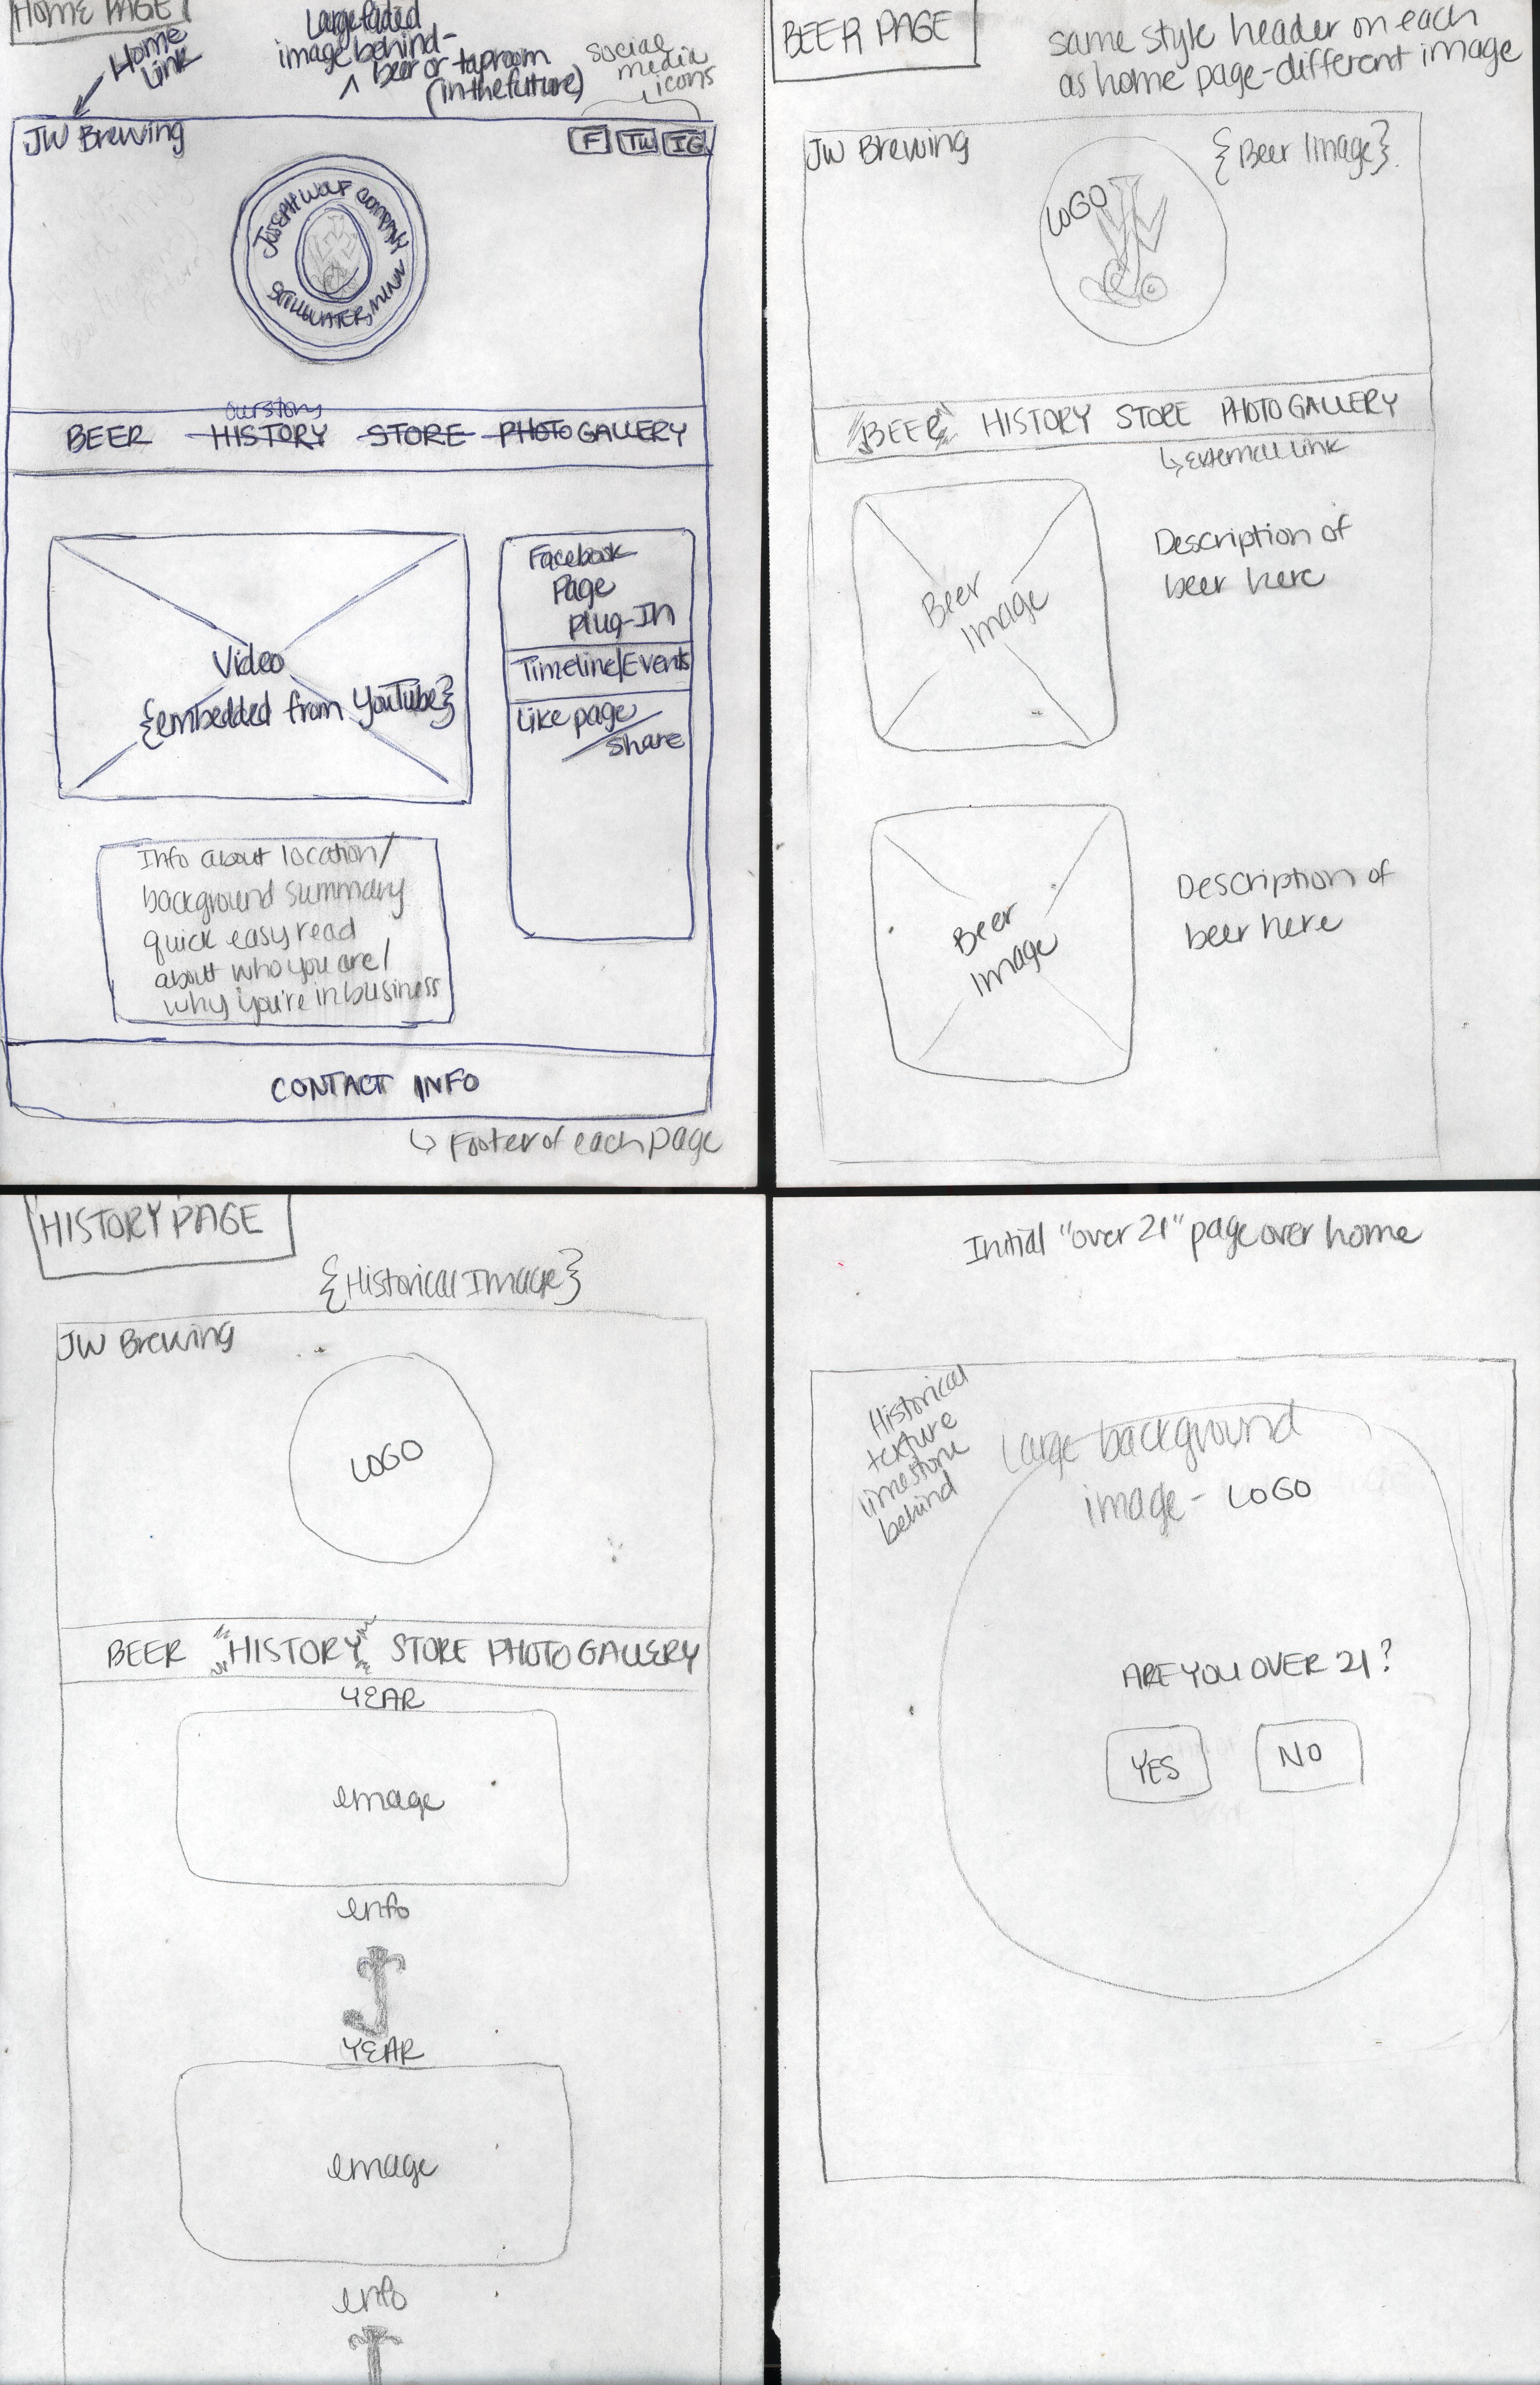 HOME PAGE
Home
Link
Large faded
image behind-
beer or taproom
(in the future)
social
media
icons
JW Brewing
F TW IG
JOSEPH WOLF COMPANY
STILLWATER, MINN
our story
BEER HISTORY STORE PHOTO GALLERY
Video
{embedded from YouTube}
Facebook
Page
Plug-In
Timeline/Events
Like page
/share
Info about location/
background summary
quick easy read
about who you are/
why you're in business
CONTACT INFO
Footer of each page
BEER PAGE
same style header on each
as home page-different image
JW Brewing
{Beer Image}
LOGO
BEER HISTORY STORE PHOTO GALLERY
external link
Beer
Image
Description of
beer here
Beer
Image
Description of
beer here
HISTORY PAGE
{Historical Image}
JW Brewing
LOGO
BEER HISTORY STORE PHOTO GALLERY
YEAR
image
info
YEAR
image
info
Initial "over 21" page over home
Historical
texture
limestone
behind
Large background
image - LOGO
ARE YOU OVER 21?
YES NO